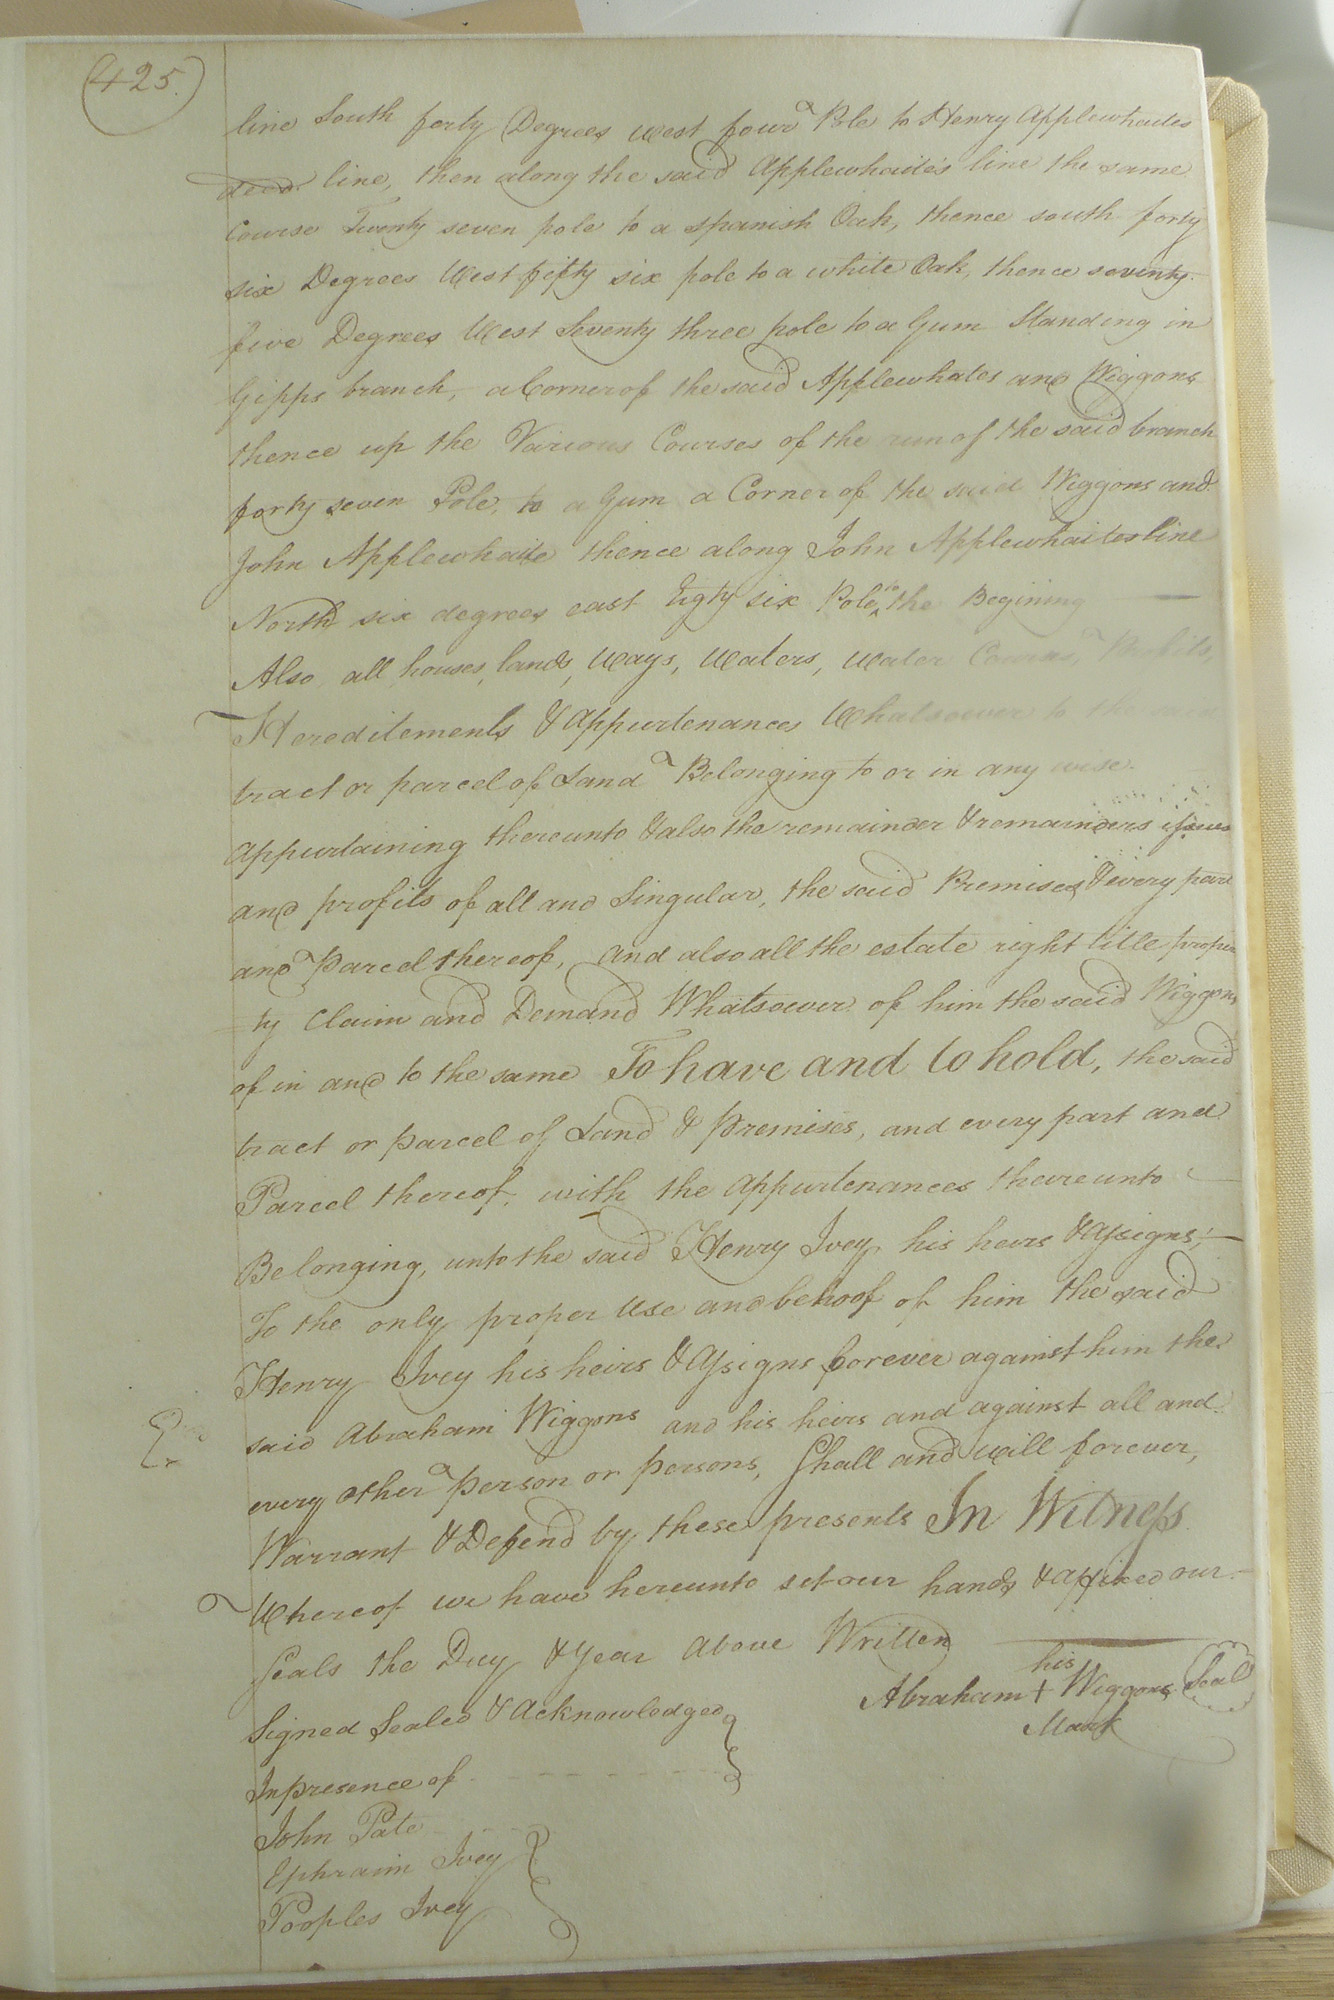 (425.)
line South forty Degrees west four Pole to Henry Applewhaites
decd. line, then along the said Applewhaite's line the same
Course Twenty seven pole to a spanish Oak, thence south forty
six Degrees West fifty six pole to a white Oak, thence seventy
five Degrees West Seventy three pole to a Gum Standing in
Gipps branch, a Corner of the said Applewhates and Wiggons
thence up the Various Courses of the run of the said branch
forty seven Pole, to a Gum a Corner of the said Wiggons and
John Applewhaite thence along John Applewhaites line
North six degrees east Eigty six Pole ^to the Begining
Also all houses, lands, Ways, Waters, Water Courses, Profits,
Hereditements & Appurtenances Whatsoever to the
tract or parcel of Land Belonging to or in any wise
Appurtaining thereunto & also the remainder & remainders issues
and profits of all and Singular, the said Premises, & every part
and Parcel thereof, and also all the estate right title proper
ty Claim and Demand Whatsoever of him the said Wiggons
of in and to the same To have and to hold, the said
tract or parcel of Land & premises, and every part and
Parcel thereof, with the Appurtenances thereunto
Belonging, unto the said Henry Ivey his heirs & Assigns,
To the only proper Use and behoof of him the said
Henry Ivey his heirs & Assigns forever against him the
said Abraham Wiggons and his heirs and against all and
Ex
every other Person or persons, Shall and will forever,
Warrant & Defend by these presents In Witness
Whereof we have hereunto set our hands & affixed our
Seals the Day & Year Above Written
his
Abraham + Wiggons Seal
Mark
Signed Sealed & Acknowledged
In presence of
John Pate
Ephraim Ivey
Peoples Ivey